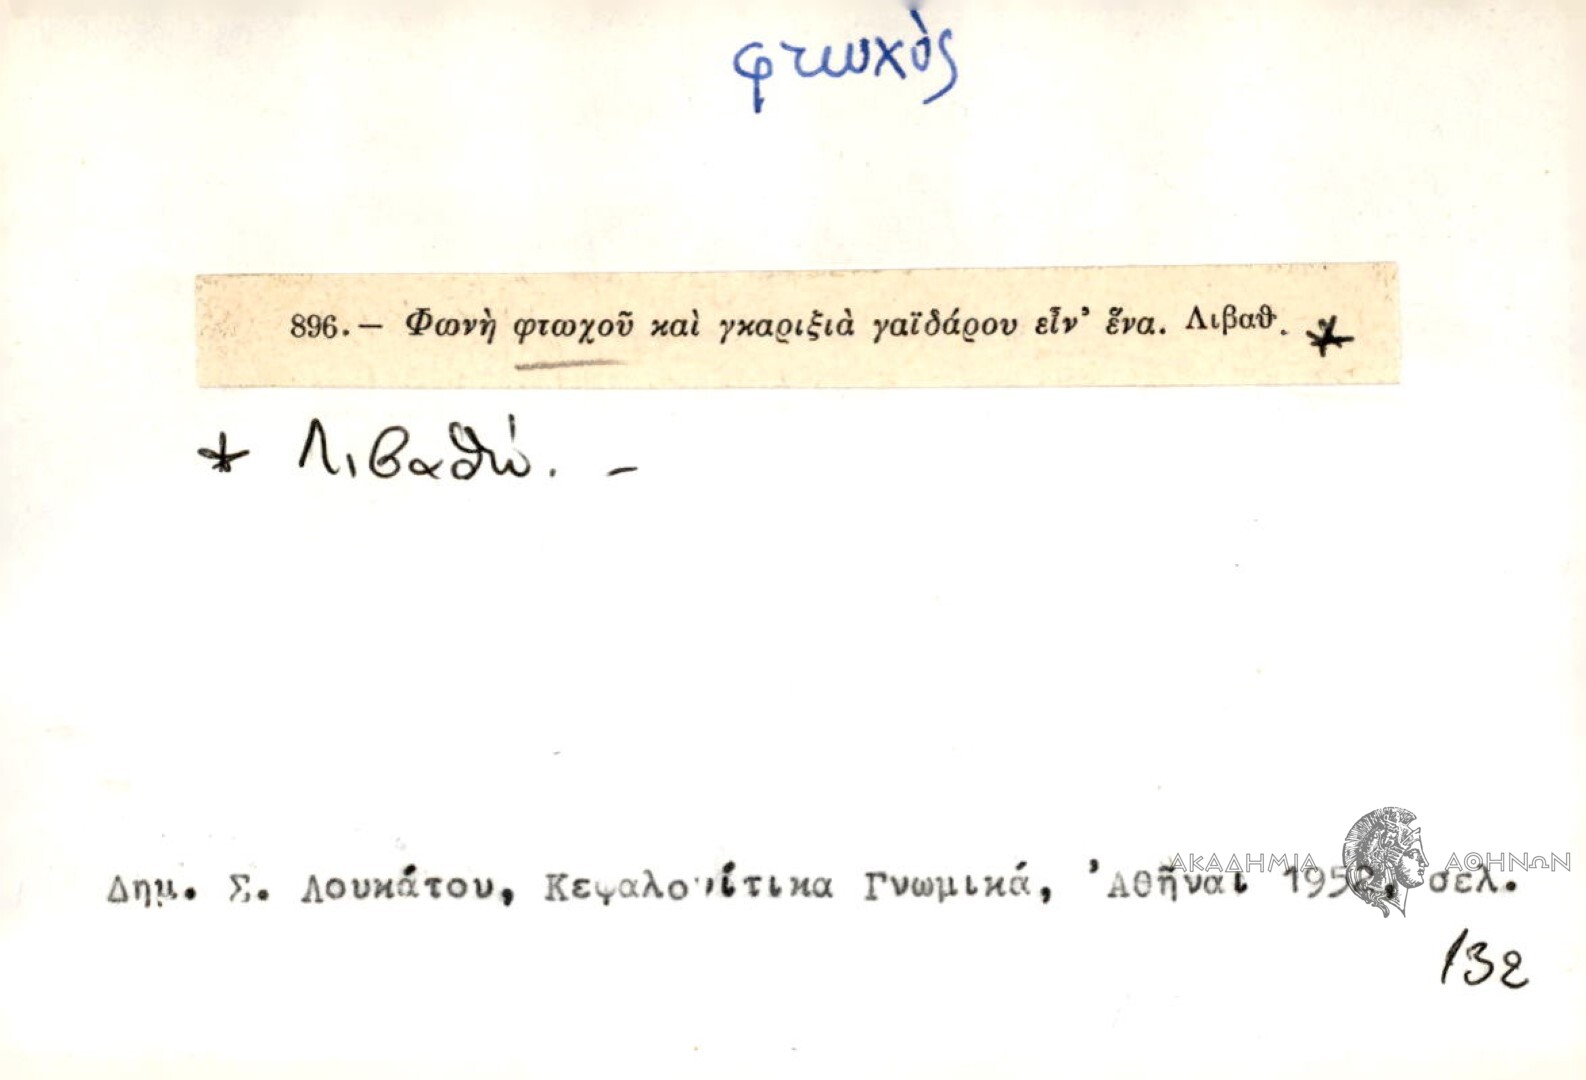 φτωχὸς
896.— Φωνὴ φτωχοῦ καὶ γκαριξιὰ γαϊδάρου εἶν' ἕνα. Λιβαθ. *
* Λιβαθώ. –
ΑΚΑΔΗΜΙΑ ΑΘΗΝΩΝ
Δημ. Σ. Λουκάτου, Κεφαλονίτικα Γνωμικά, Ἀθῆναι 1952, σελ.
132